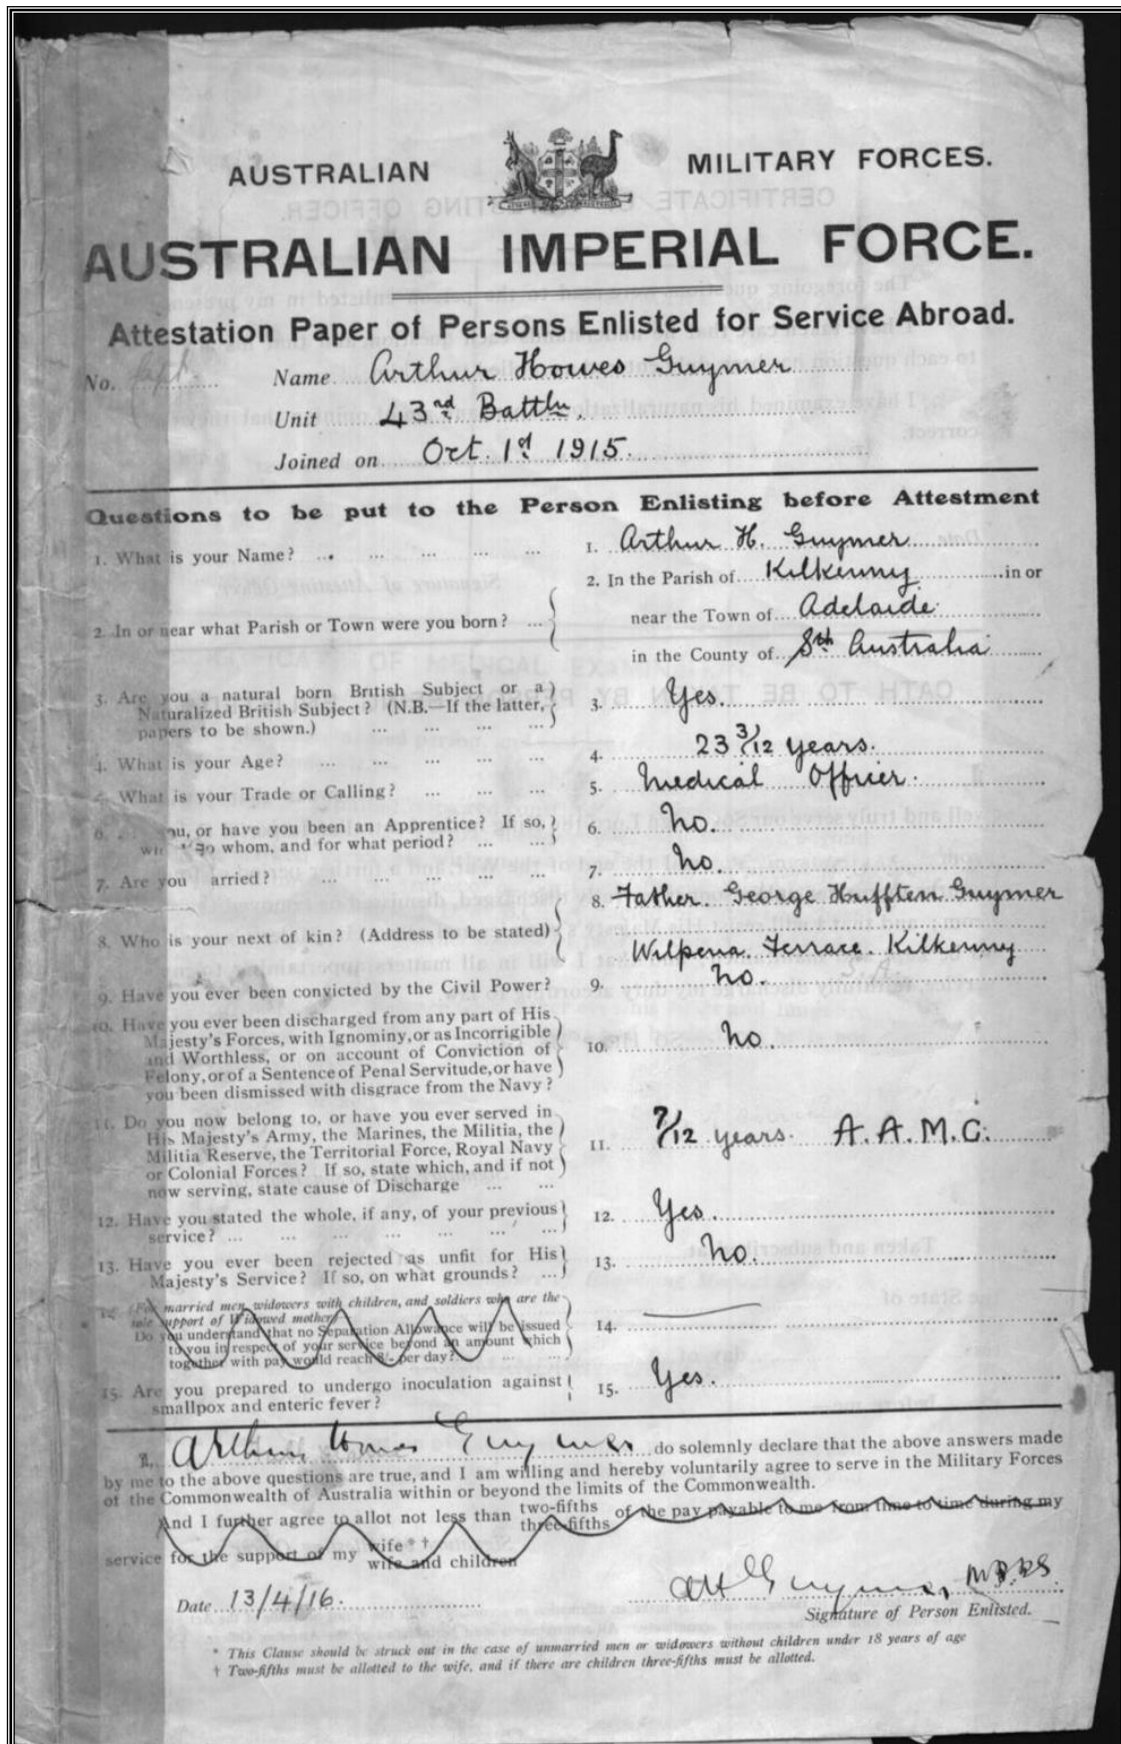 AUSTRALIAN MILITARY FORCES.
AUSTRALIAN IMPERIAL FORCE.
Attestation Paper of Persons Enlisted for Service Abroad.
No. Capt. Name Arthur Howes Guymer
Unit 43rd Battln.
Joined on Oct. 1st 1915.
Questions to be put to the Person Enlisting before Attestment
1. What is your Name? ... ... ... ... ... 1. Arthur H. Guymer
2. In the Parish of Kilkenny in or
2. In or near what Parish or Town were you born? ... near the Town of Adelaide.
in the County of Sth Australia
3. Are you a natural born British Subject or a
Naturalized British Subject? (N.B.—If the latter, 3. Yes.
papers to be shown.) ... ... ... ...
4. What is your Age? ... ... ... ... ... 4. 23 3/12 years.
What is your Trade or Calling? ... ... ... 5. Medical Officer.
6. you, or have you been an Apprentice? If so, 6. No.
to whom, and for what period? ... ...
7. Are you arried? ... ... ... ... ... 7. No.
8. Father. George Hufften Guymer
8. Who is your next of kin? (Address to be stated)
Wilpena Terrace. Kilkenny
S.A.
9. Have you ever been convicted by the Civil Power? 9. No.
10. Have you ever been discharged from any part of His
Majesty's Forces, with Ignominy, or as Incorrigible
and Worthless, or on account of Conviction of 10. No.
Felony, or of a Sentence of Penal Servitude, or have
you been dismissed with disgrace from the Navy?
11. Do you now belong to, or have you ever served in
His Majesty's Army, the Marines, the Militia, the
Militia Reserve, the Territorial Force, Royal Navy 11. 7/12 years. A.A.M.C.
or Colonial Forces? If so, state which, and if not
now serving, state cause of Discharge ... ...
12. Have you stated the whole, if any, of your previous 12. Yes.
service? ... ... ... ... ... ... ...
13. Have you ever been rejected as unfit for His 13. No.
Majesty's Service? If so, on what grounds? ...
14. (For married men, widowers with children, and soldiers who are the
sole support of Widowed mother)
Do you understand that no Separation Allowance will be issued 14.
to you in respect of your service beyond an amount which
together with pay would reach 8/- per day? ... ...
15. Are you prepared to undergo inoculation against 15. Yes.
smallpox and enteric fever?
I, Arthur Howes Guymer do solemnly declare that the above answers made
by me to the above questions are true, and I am willing and hereby voluntarily agree to serve in the Military Forces
of the Commonwealth of Australia within or beyond the limits of the Commonwealth.
And I further agree to allot not less than two-fifths three-fifths of the pay payable to me from time to time during my
service for the support of my wife * † wife and children
Date 13/4/16. AH Guymer M.B.B.S.
Signature of Person Enlisted.
* This Clause should be struck out in the case of unmarried men or widowers without children under 18 years of age
† Two-fifths must be allotted to the wife, and if there are children three-fifths must be allotted.